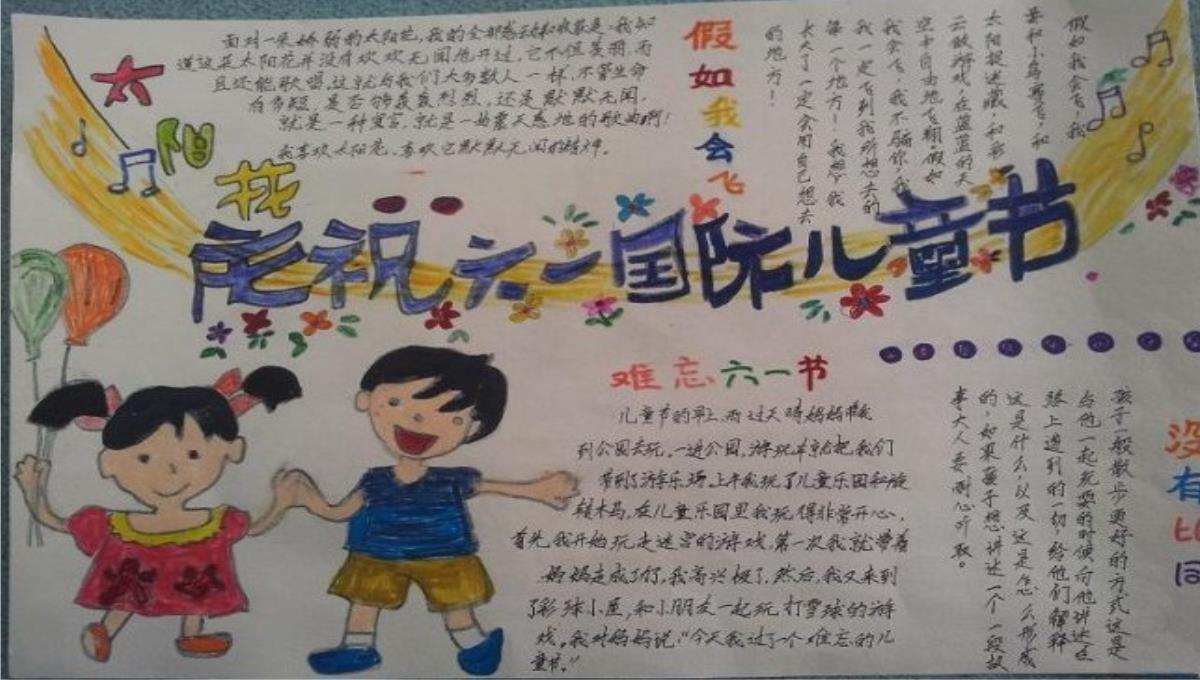 太阳花
面对一朵娇弱的太阳花,我的全部感动和敬意是:我知
道这这是太阳花并没有欢欢无闻地开过,它不但美丽,而
且还能歌唱,这就与我们大多数人一样,不管生命
有多短,是否够轰轰烈烈,还是默默无闻,
就是一种宣言,就是一曲震天惑地的歌曲啊!
我喜欢太阳花,喜欢它默默无闻的精神。
假如我会飞
假如我会飞,我
要和小鸟齐飞,和
太阳捉迷藏,和彩
云做游戏,在蓝蓝的天
空中自由地飞翔。假如
我会飞,我不骗你,我
我一定飞到我所想去的
每一个地方!我想,我
长大了一定会用自己想去
的地方!
庆祝六一国际儿童节
难忘六一节
儿童节的早上,雨过天晴妈妈带我
到公园去玩。一进公园,游玩车就把我们
带到了游乐场。上午我玩了儿童乐园和旋
转木马,在儿童乐园里我玩得非常开心,
首先,我开始玩走迷宫的游戏,第一次我就带着
妈妈走成了们,我高兴极了,然后,我又来到
了彩球小屋,和小朋友一起玩打雪球的游
戏。我对妈妈说:“今天我过了一个难忘的儿
童节。”
没有比
孩子一般散步更好的方式这是
与他一起玩耍的时候向他讲述在
路上遇到的一切,给他们解释
这是什么,以及这是怎么形成
的,如果孩子想讲述一个一段故
事大人要耐心听取。